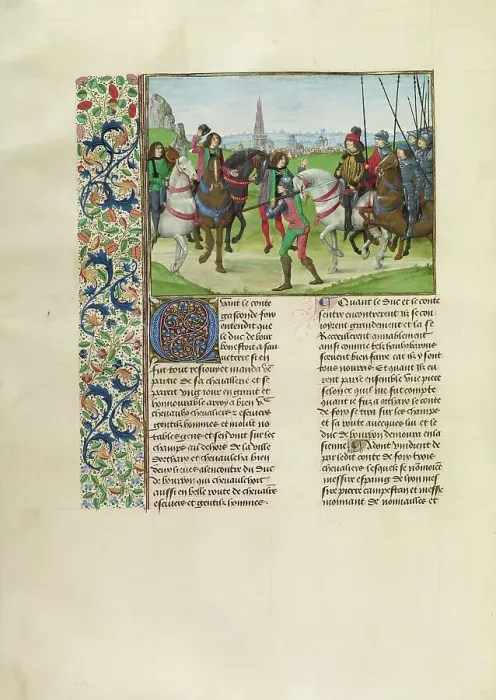 Quant le conte
gascon de foix
entendit que
le duc de bour
bon estoit a sau
ueterre si en
fut tout resiouy et manda
partie de sa cheuallerie et se
partit ung iour en errant et
honnourable arroy a bien
cheuaulx cheualiers et escuiers
gentilz hommes et moult no
tables gens et sen vint sur les
champs au dehors de la ville
dorthais et cheuaulcha bien
deux lieues alencontre du duc
de bourbon qui cheuaulchoit
aussi en belle route de cheualiers
escuiers et gentilz hommes
Quant le duc et le conte
sentre encontrerent ilz se con
ioyrent grandement et la se
Recueillirent amiablement
ainsi comme telz haulx barons
sceuent bien faire car ilz y sont
tous nourris Et quant ilz eu
rent parle ensemble une piece
selon ce quil me fut compte
quant ie fuz a orthais le conte
de foix se tira sur les champs
et sa route auecques lui et le
duc de bourbon demoura en la
sienne Adont vindrent de
par ledit conte de foix trois
cheualiers lesquelz se nommoient
messire espaing de lyon mes
sire pierre campestran et messire
monnant de nouuailles et